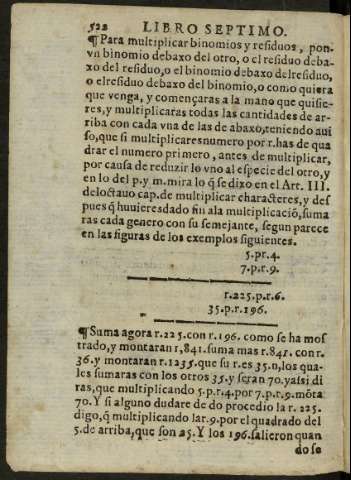 522 LIBRO SEPTIMO.
¶Para multiplicar binomios y residuos, pon-
vn binomio debaxo del otro, o el residuo deba-
xo del residuo, o el binomio debaxo del residuo,
o el residuo debaxo del binomio, o como quiera
que venga, y començaras a la mano que quisie-
res, y multiplicaras todas las cantidades de ar-
riba con cada vna de las de abaxo, teniendo aui
so, que si multiplicares numero por r. has de qua
drar el numero primero, antes de multiplicar,
por causa de reduzir lo vno al especie del otro, y
en lo del p. y m. mira lo q̃ se dixo en el Art. III.
del octauo cap. de multiplicar characteres, y des
pues q̃ huuieres dado fin ala multiplicaciõ, suma
ras cada genero con su semejante, segun parece
en las figuras de los exemplos siguientes.
5.pr.4.
7.p.r.9.
r.225.p.r.6.
35.p.r.196.
¶Suma agora r.225.con r.196. como se ha mos
trado, y montaran r,841. suma mas r.841. con r.
36. y montaran r.1235. que su r. es 35.n, los qua-
les sumaras con los otros 35. y seran 70. yasi di
ras, que multiplicando 5.p.r.4. por 7.p.r.9. mõta
70. Y si alguno dudare de do procedio la r. 225.
digo, q̃ multiplicando lar.9. por el quadrado del
5. de arriba, que son 25. Y los 196. salieron quan
do se